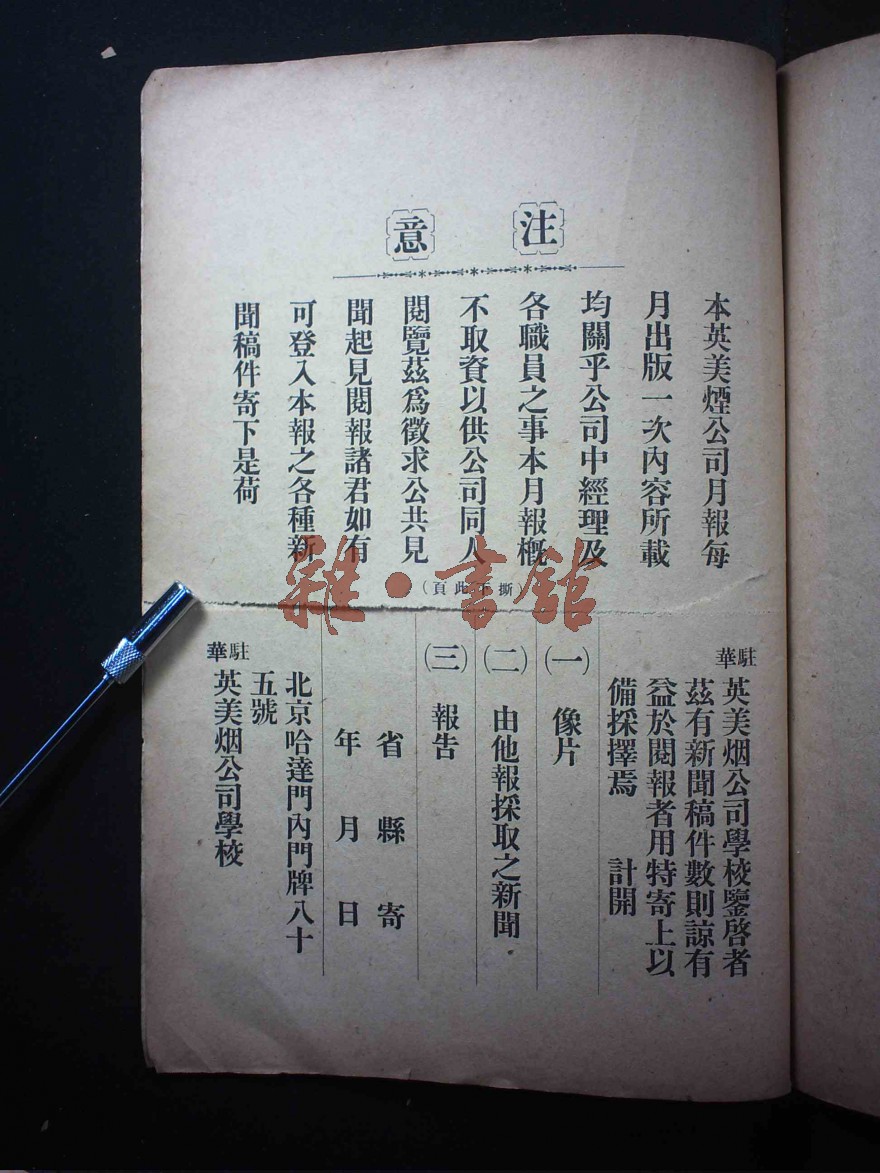 注意
本英美煙公司月報每
月出版一次內容所載
均關乎公司中經理及
各職員之事本月報概
不取資以供公司同人
閱覽茲爲徵求公共見
聞起見閱報諸君如有
可登入本報之各種新
聞稿件寄下是荷
(撕下此頁)
駐華英美烟公司學校鑒啓者
茲有新聞稿件數則諒有
益於閱報者用特寄上以
備採擇焉 計開
(一) 像片
(二) 由他報採取之新聞
(三) 報告
省 縣 寄
年 月 日
北京哈達門內門牌八十
五號
駐華英美烟公司學校
雜·書館